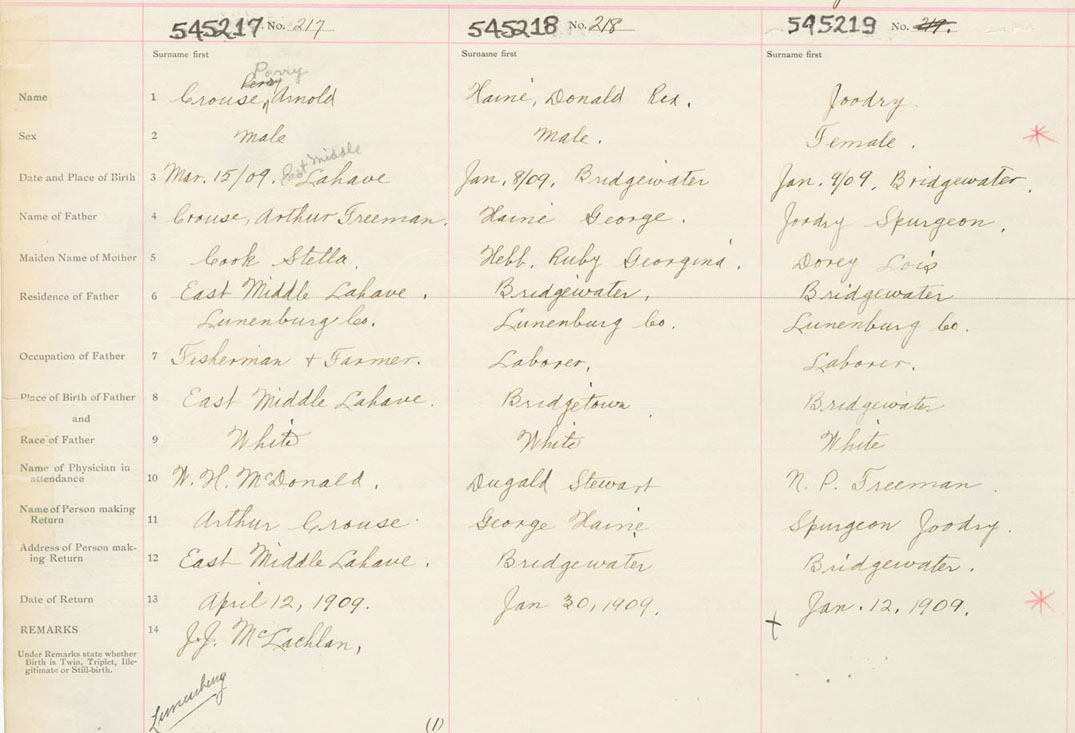 545217 No. 217 545218 No. 218 545219 No. 219.
Surname first Surname first Surname first
Perry
Perry
Name 1 Crouse, Arnold Hainé, Donald Rex. Joodry.
Sex 2 male Male. Female.
East Middle
Date and Place of Birth 3 Mar. 15/09. Lahave Jan. 8/09. Bridgewater Jan. 9/09. Bridgewater.
Name of Father 4 Crouse, Arthur Freeman. Hainé George. Joodry Spurgeon.
Maiden Name of Mother 5 Cook Stella. Hebb, Ruby Georgina. Dorey Lois
Residence of Father 6 East Middle Lahave. Bridgewater. Bridgewater
Lunenburg Co. Lunenburg Co. Lunenburg Co.
Occupation of Father 7 Fisherman + Farmer. Laborer. Laborer.
Place of Birth of Father 8 East Middle Lahave. Bridgetown. Bridgewater
and
Race of Father 9 White White White
Name of Physician in
attendance 10 W. H. McDonald. Dugald Stewart N. P. Freeman.
Name of Person making
Return 11 Arthur Crouse. George Hainé Spurgeon Joodry.
Address of Person mak-
ing Return 12 East Middle Lahave. Bridgewater Bridgewater.
Date of Return 13 April 12, 1909. Jan 30, 1909. Jan. 12, 1909.
REMARKS 14 J. J. McLachlan,
Under Remarks state whether
Birth is Twin, Triplet, Ille-
gitimate or Still-birth.
Lunenburg
(1)